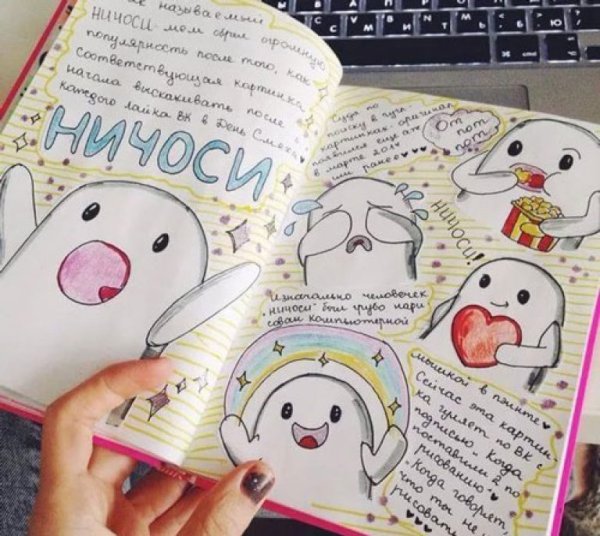 называемый
НИЧОСИ-мем обрел огромную
популярность после того, как
соответствующая картинка
начала выскакивать после
каждого лайка ВК в День Смеха
НИЧОСИ
Судя по
поиску в гугл-
картинках оригинал
появился еще
в марте 2014
или ранее
От
пот
пот
НИЧОСИ!
Изначально человечек
"ничоси" был грубо нари
сован компьютерной
мышкой в пэинте
Сейчас эта картин
ка гуляет по ВК с
подписью "Когда
поставили 2 по
рисованию"
"Когда говорят,
что ты не
рисовать